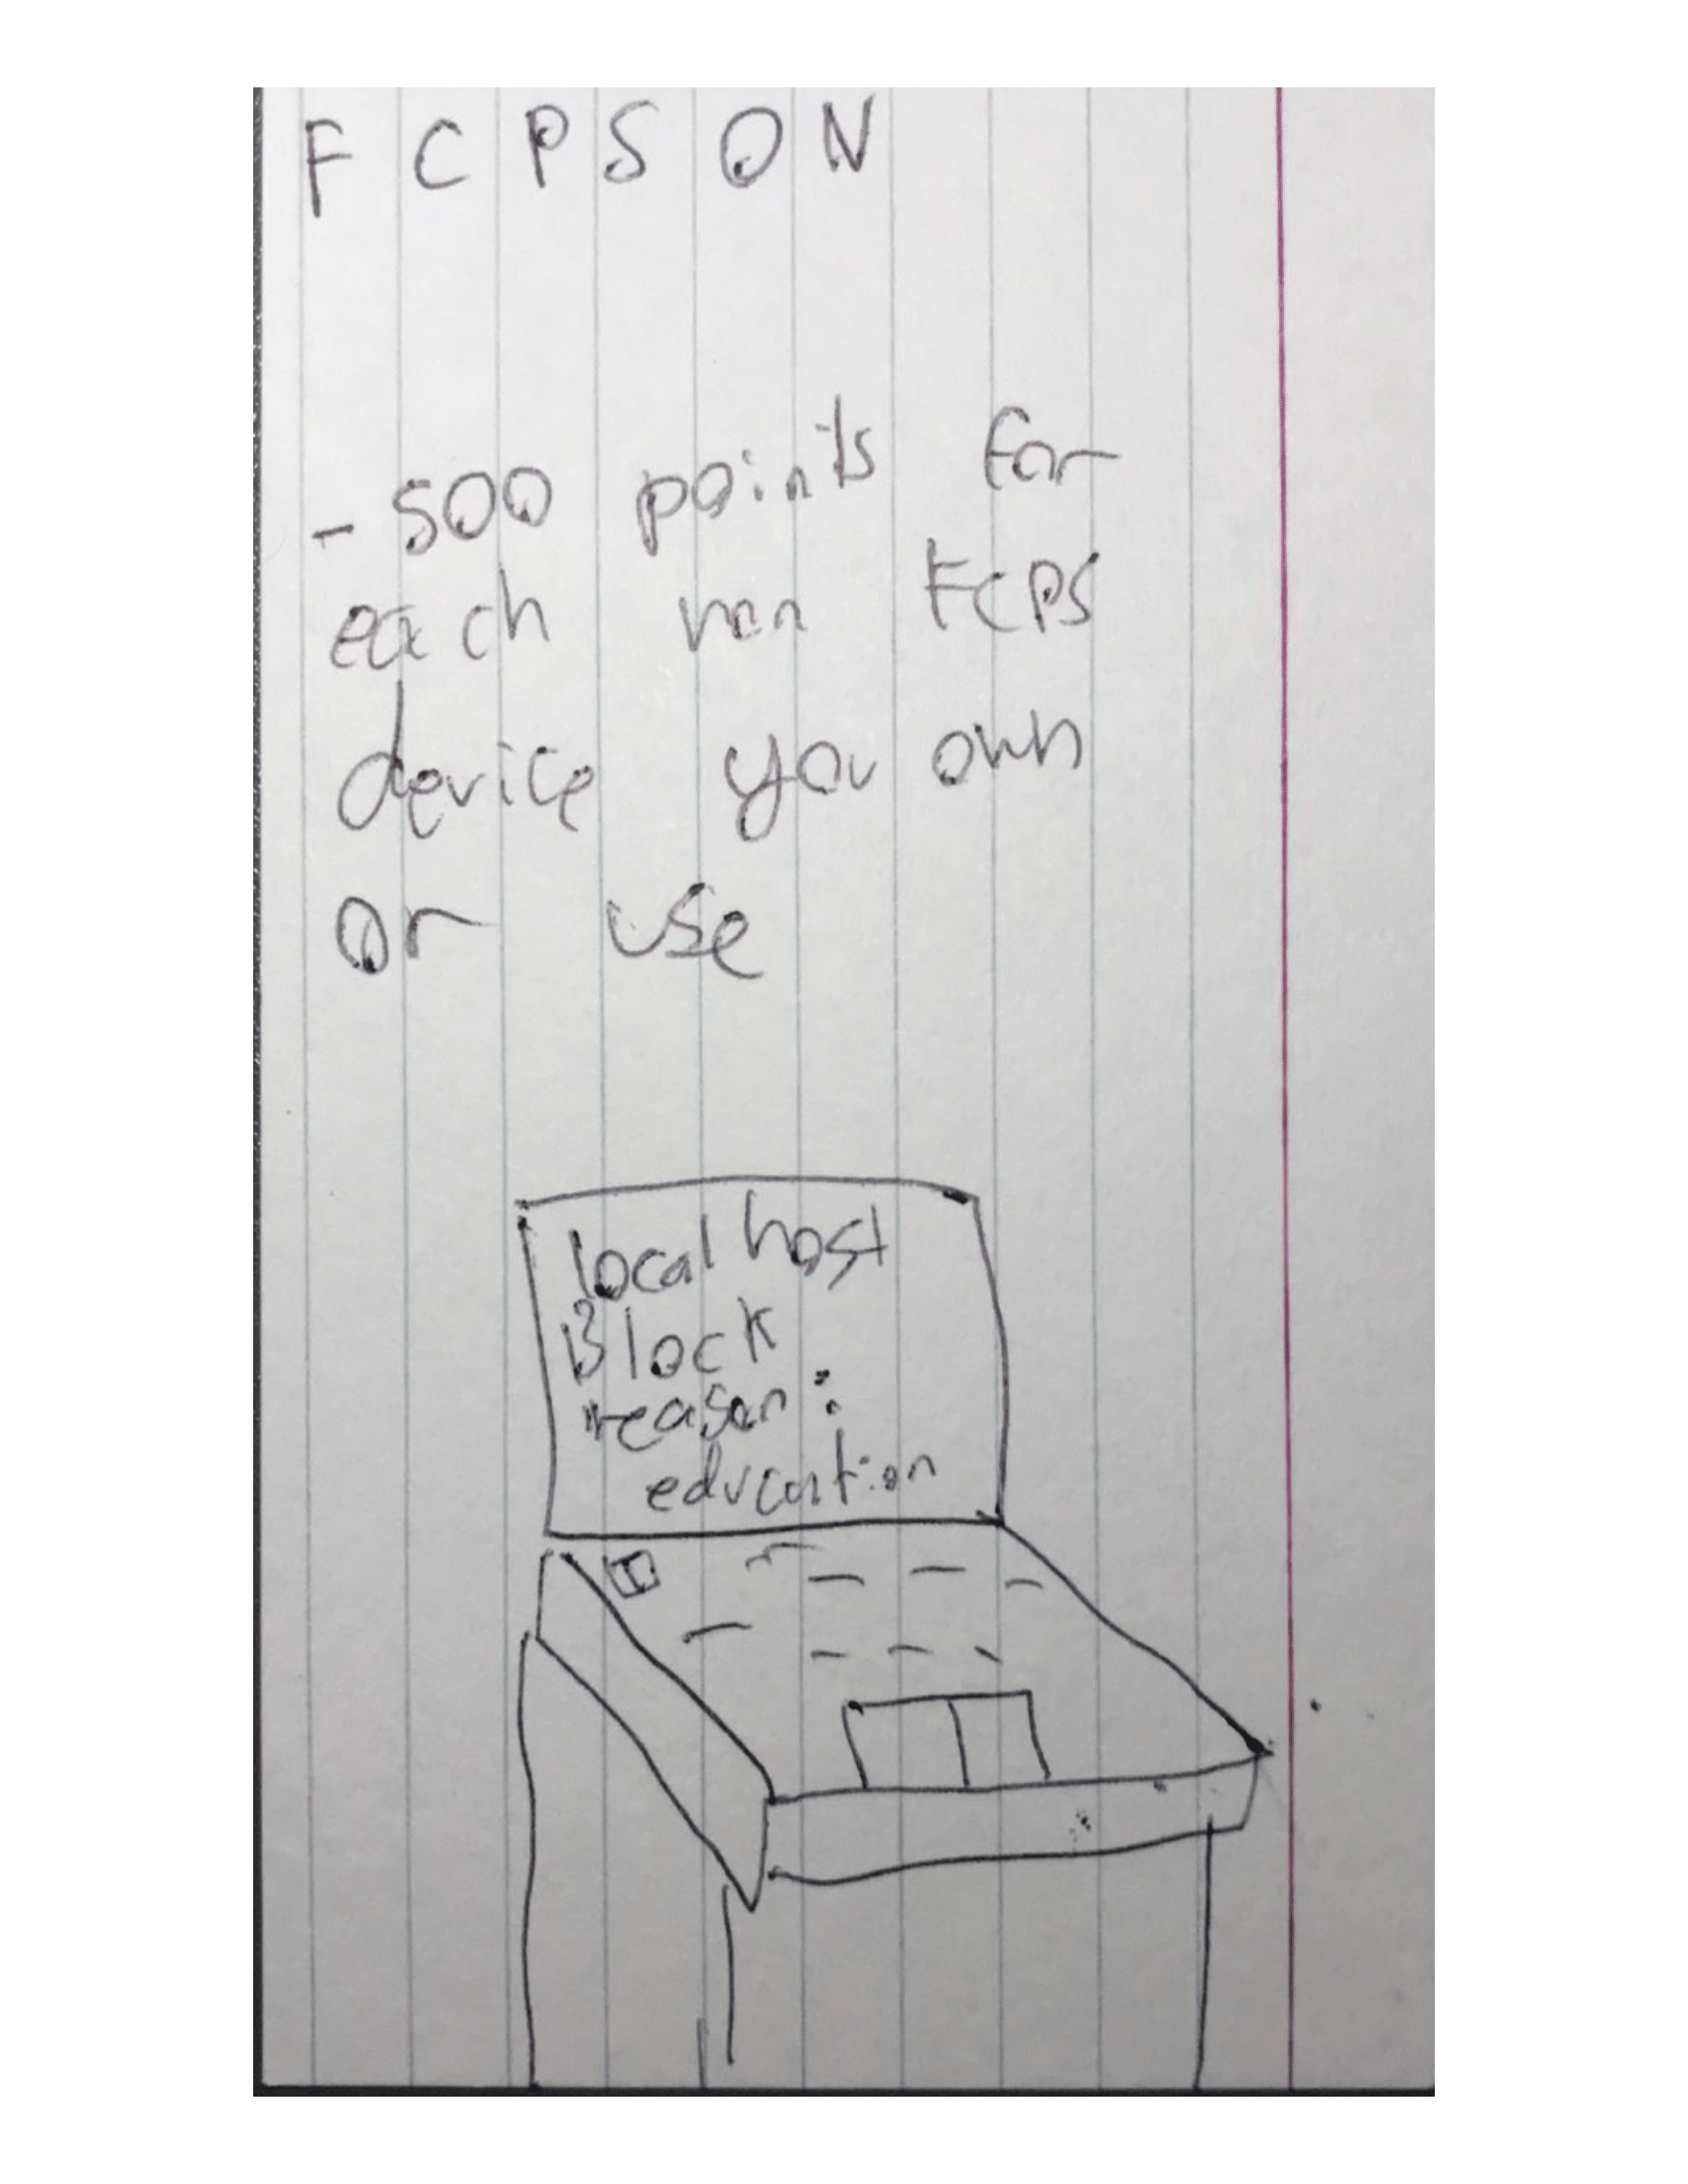 FCPSON
- 500 points for
each non FCPS
device you own
or use
localhost
Block
reason:
education